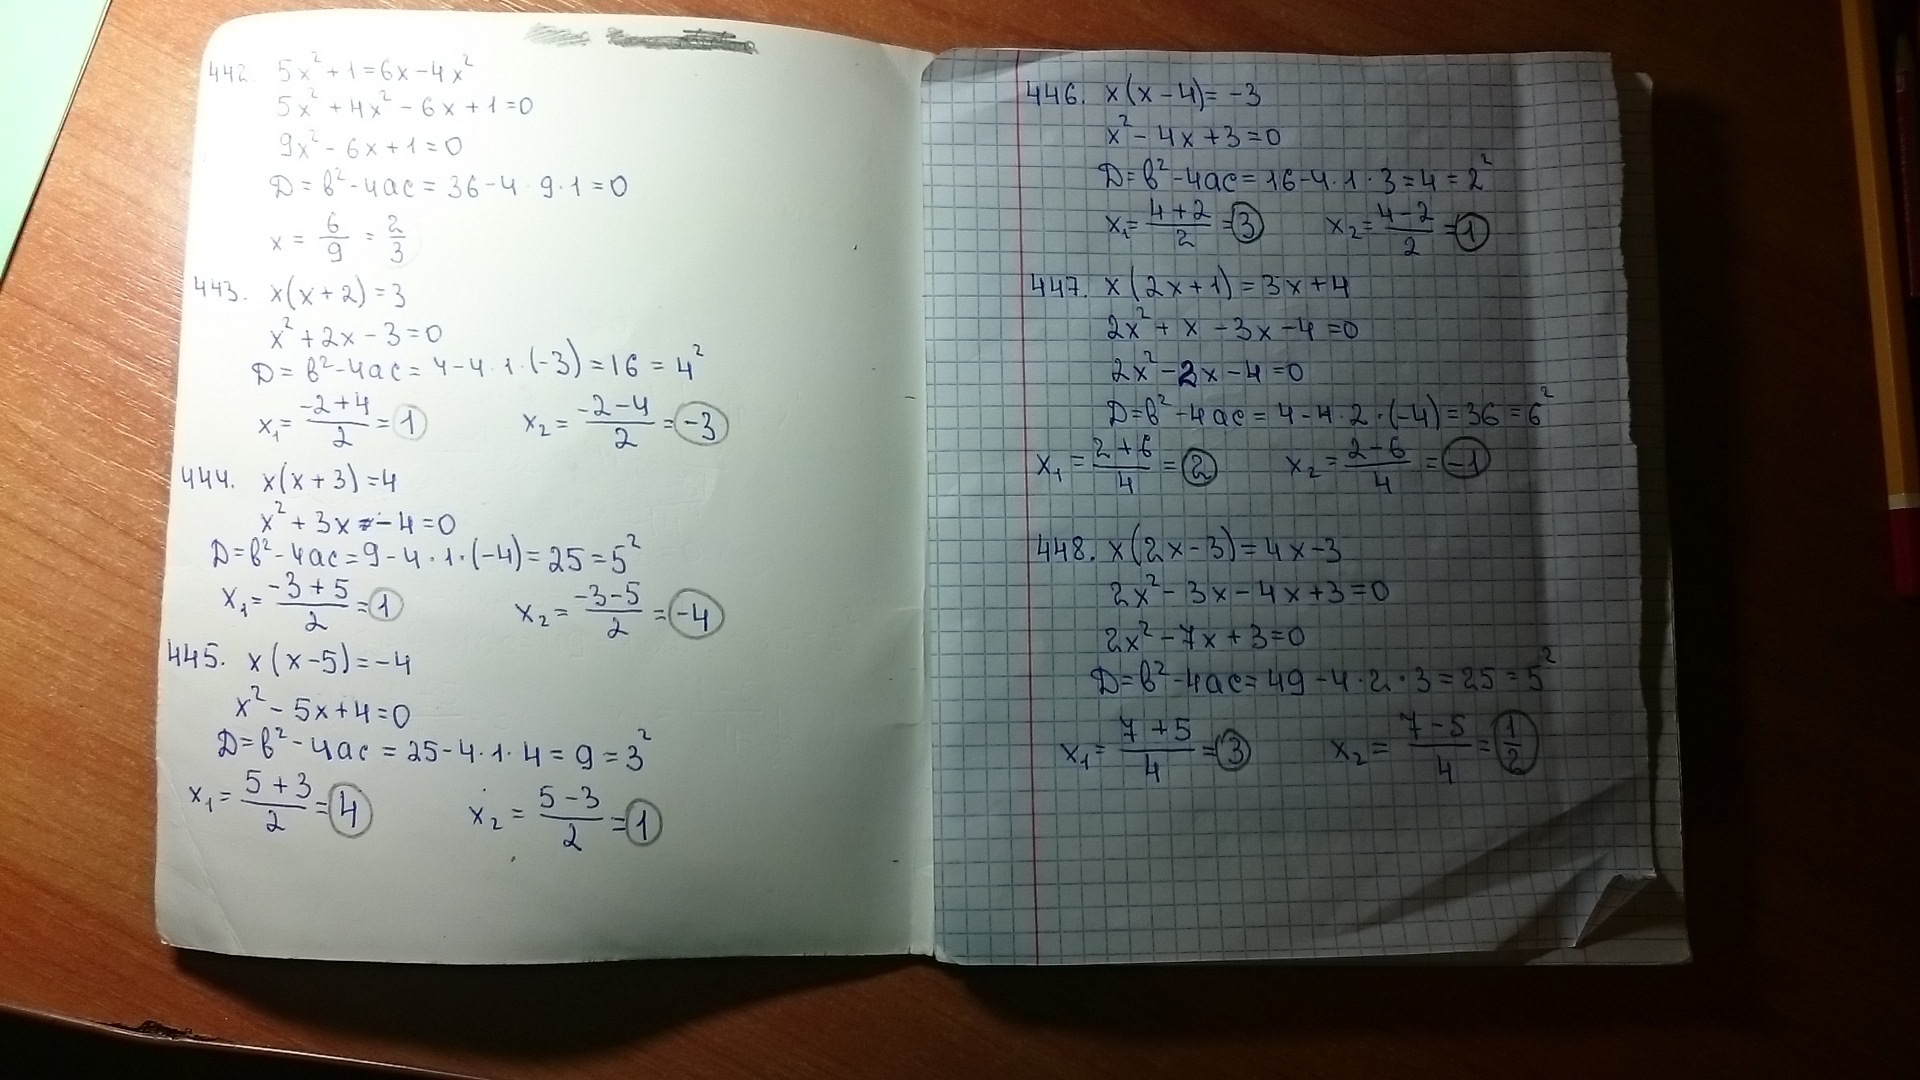 442. 5x² + 1 = 6x - 4x²
5x² + 4x² - 6x + 1 = 0
9x² - 6x + 1 = 0
Д = в² - 4ас = 36 - 4 · 9 · 1 = 0
x = 6/9 = 2/3
443. x(x + 2) = 3
x² + 2x - 3 = 0
Д = в² - 4ас = 4 - 4 · 1 · (-3) = 16 = 4²
x₁ = (-2 + 4)/2 = 1 x₂ = (-2 - 4)/2 = -3
444. x(x + 3) = 4
x² + 3x - 4 = 0
Д = в² - 4ас = 9 - 4 · 1 · (-4) = 25 = 5²
x₁ = (-3 + 5)/2 = 1 x₂ = (-3 - 5)/2 = -4
445. x(x - 5) = -4
x² - 5x + 4 = 0
Д = в² - 4ас = 25 - 4 · 1 · 4 = 9 = 3²
x₁ = (5 + 3)/2 = 4 x₂ = (5 - 3)/2 = 1
446. x(x - 4) = -3
x² - 4x + 3 = 0
Д = в² - 4ас = 16 - 4 · 1 · 3 = 4 = 2²
x₁ = (4 + 2)/2 = 3 x₂ = (4 - 2)/2 = 1
447. x(2x + 1) = 3x + 4
2x² + x - 3x - 4 = 0
2x² - 2x - 4 = 0
Д = в² - 4ас = 4 - 4 · 2 · (-4) = 36 = 6²
x₁ = (2 + 6)/4 = 2 x₂ = (2 - 6)/4 = -1
448. x(2x - 3) = 4x - 3
2x² - 3x - 4x + 3 = 0
2x² - 7x + 3 = 0
Д = в² - 4ас = 49 - 4 · 2 · 3 = 25 = 5²
x₁ = (7 + 5)/4 = 3 x₂ = (7 - 5)/4 = 1/2